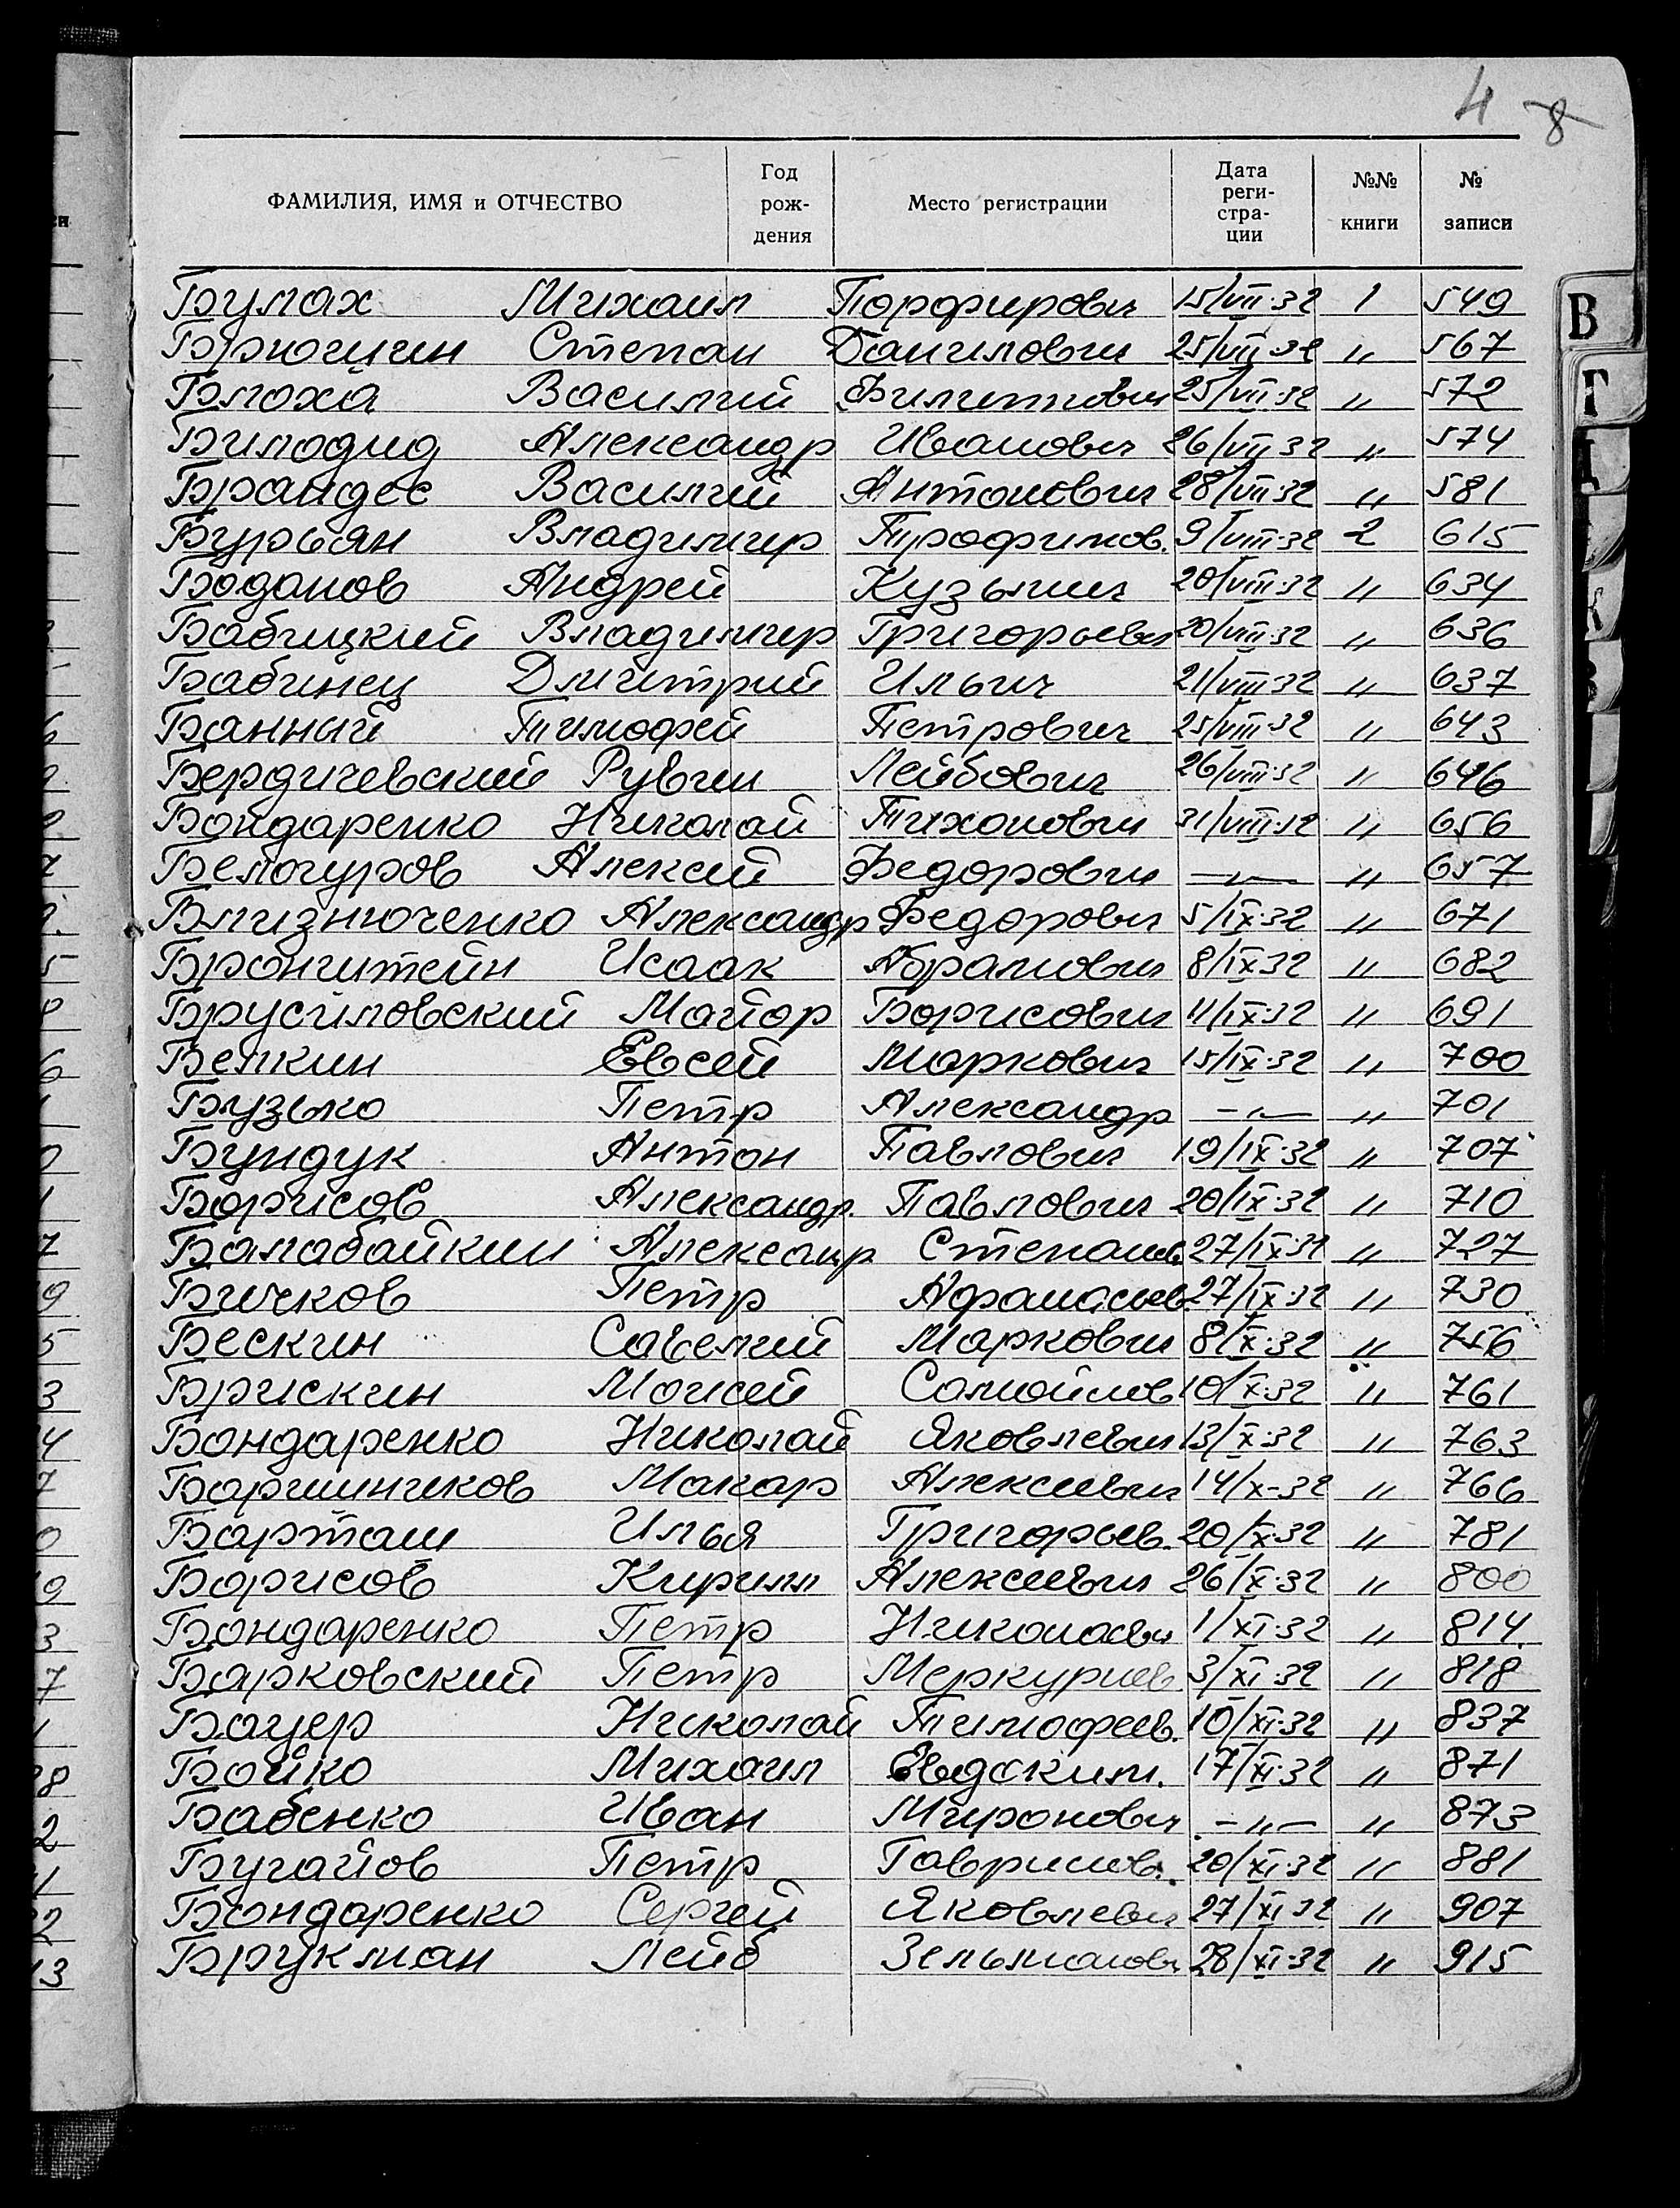 4 8
ФАМИЛИЯ, ИМЯ и ОТЧЕСТВО Год рождения Место регистрации Дата регистрации №№ книги № записи
Булах Михаил Порфирович 15/VIII·32 1 549
Брюгин Степан Данилович 25/VII·32 " 567
Блоха Василий Филиппович 25/VII·32 " 572
Билодид Александр Иванович 26/VII 32 " 574
Брандес Василий Антонович 28/VII·32 " 581
Бурьян Владимир Трофимов. 9/VIII·32 2 615
Боданов Андрей Кузьмич 20/VIII·32 " 634
Бабицкий Владимир Григорьевич 20/VIII·32 " 636
Бабинец Дмитрий Ильич 21/VIII 32 " 637
Банный Тимофей Петрович 25/VIII·32 " 643
Бердичевский Рувин Лейбович 26/VIII·32 " 646
Бондаренко Николай Тихонович 31/VIII·32 " 656
Белогуров Алексей Федорович —"— " 657
Близнюченко Александр Федорович 5/IX·32 " 671
Бронштейн Исаак Абрамович 8/IX·32 " 682
Брусиловский Майор Борисович 11/IX·32 " 691
Белкин Евсей Маркович 15/IX·32 " 700
Бузько Петр Александр —"— " 701
Бундук Антон Павлович 19/IX·32 " 707
Борисов Александр. Павлович 20/IX·32 " 710
Балабайкин Александр Степанов. 27/IX·31 " 727
Бичков Петр Афанасьев. 27/IX·32 " 730
Бескин Савелий Маркович 8/X·32 " 756
Брискин Моисей Самойлов. 10/X·32 " 761
Бондаренко Николай Яковлевич 13/X·32 " 763
Баршинков Макар Алексеевич 14/X-32 " 766
Барташ Илья Григорьев. 20/X·32 " 781
Борисов Кирилл Алексеевич 26/X·32 " 800
Бондаренко Петр Николаевич 1/XI·32 " 814
Барковский Петр Меркуриев 3/XI·32 " 818
Бауер Николай Тимофеев. 10/XI·32 " 837
Бойко Михаил Евдоким. 17/XI·32 " 871
Бабенко Иван Миронович —"— " 873
Бугайов Петр Гаврилов. 20/XI·32 " 881
Бондаренко Сергей Яковлевич 27/XI 32 " 907
Брукман Лейб Зельманович 28/XI·32 " 915
В
Г